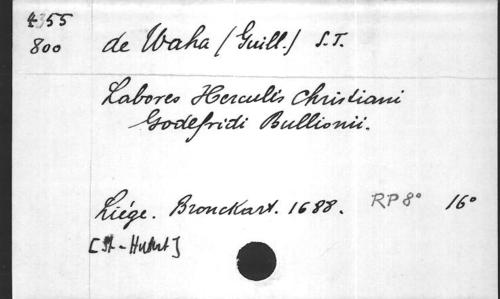 4355
800
de Waha (Guill.) S.T.
Labores Herculis Christiani
Godefridi Bullionii.
Liége. Bronckart. 1688. RP 8° 16°
[St-Hubert]